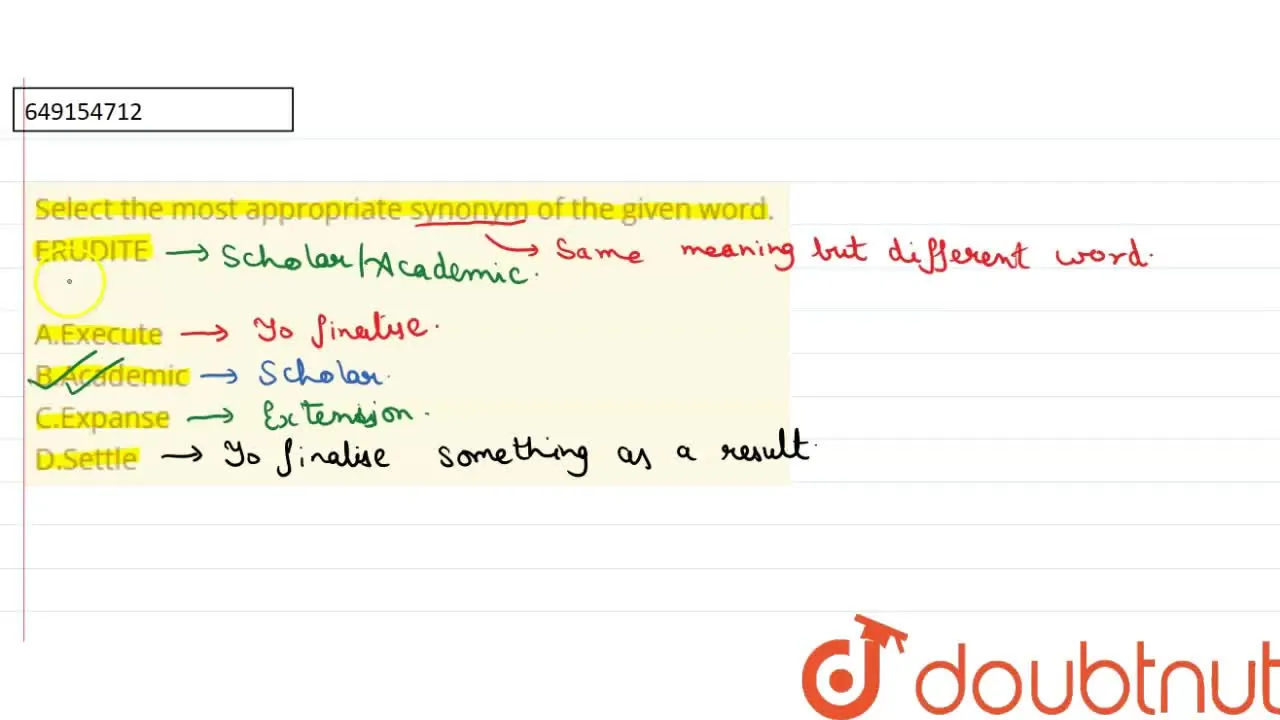 649154712
Select the most appropriate synonym of the given word.
ERUDITE → Scholar/Academic. → Same meaning but different word.
A.Execute → To finalise.
B.Academic → Scholar.
C.Expanse → Extension.
D.Settle → To finalise something as a result.
doubtnut